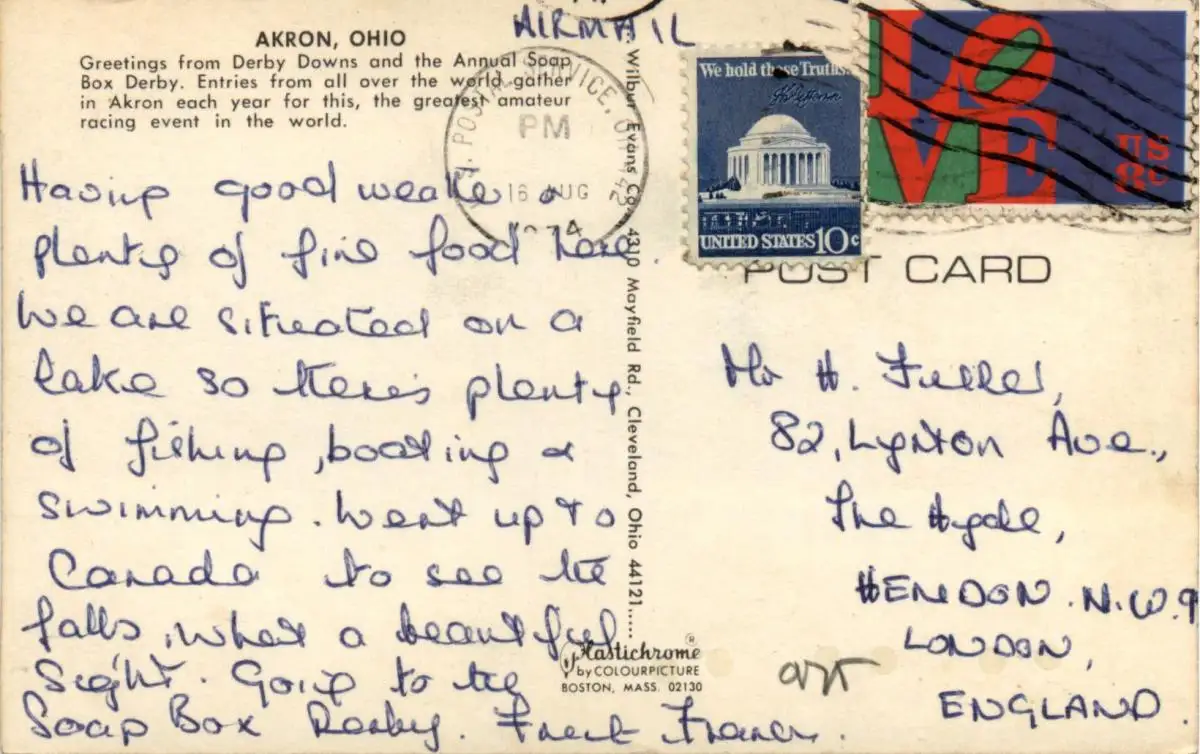 AIRMAIL
AKRON, OHIO
Greetings from Derby Downs and the Annual Soap
Box Derby. Entries from all over the world gather
in Akron each year for this, the greatest amateur
racing event in the world.
PM
16 AUG
We hold these Truths
UNITED STATES 10c
LOVE
US
8c
POST CARD
Having good weather &
plenty of fine food here.
We are situated on a
lake so there's plenty
of fishing, boating &
swimming. Went up to
Canada to see the
falls, what a beautiful
sight. Going to the
Soap Box Derby.
Wilbur Evans Co., 4310 Mayfield Rd., Cleveland, Ohio 44121
Plastichrome ®
by COLOURPICTURE
BOSTON, MASS. 02130
Mr H. Fuller,
82, Lynton Ave.,
The Hyde,
HENDON. N.W.9
LONDON,
ENGLAND.